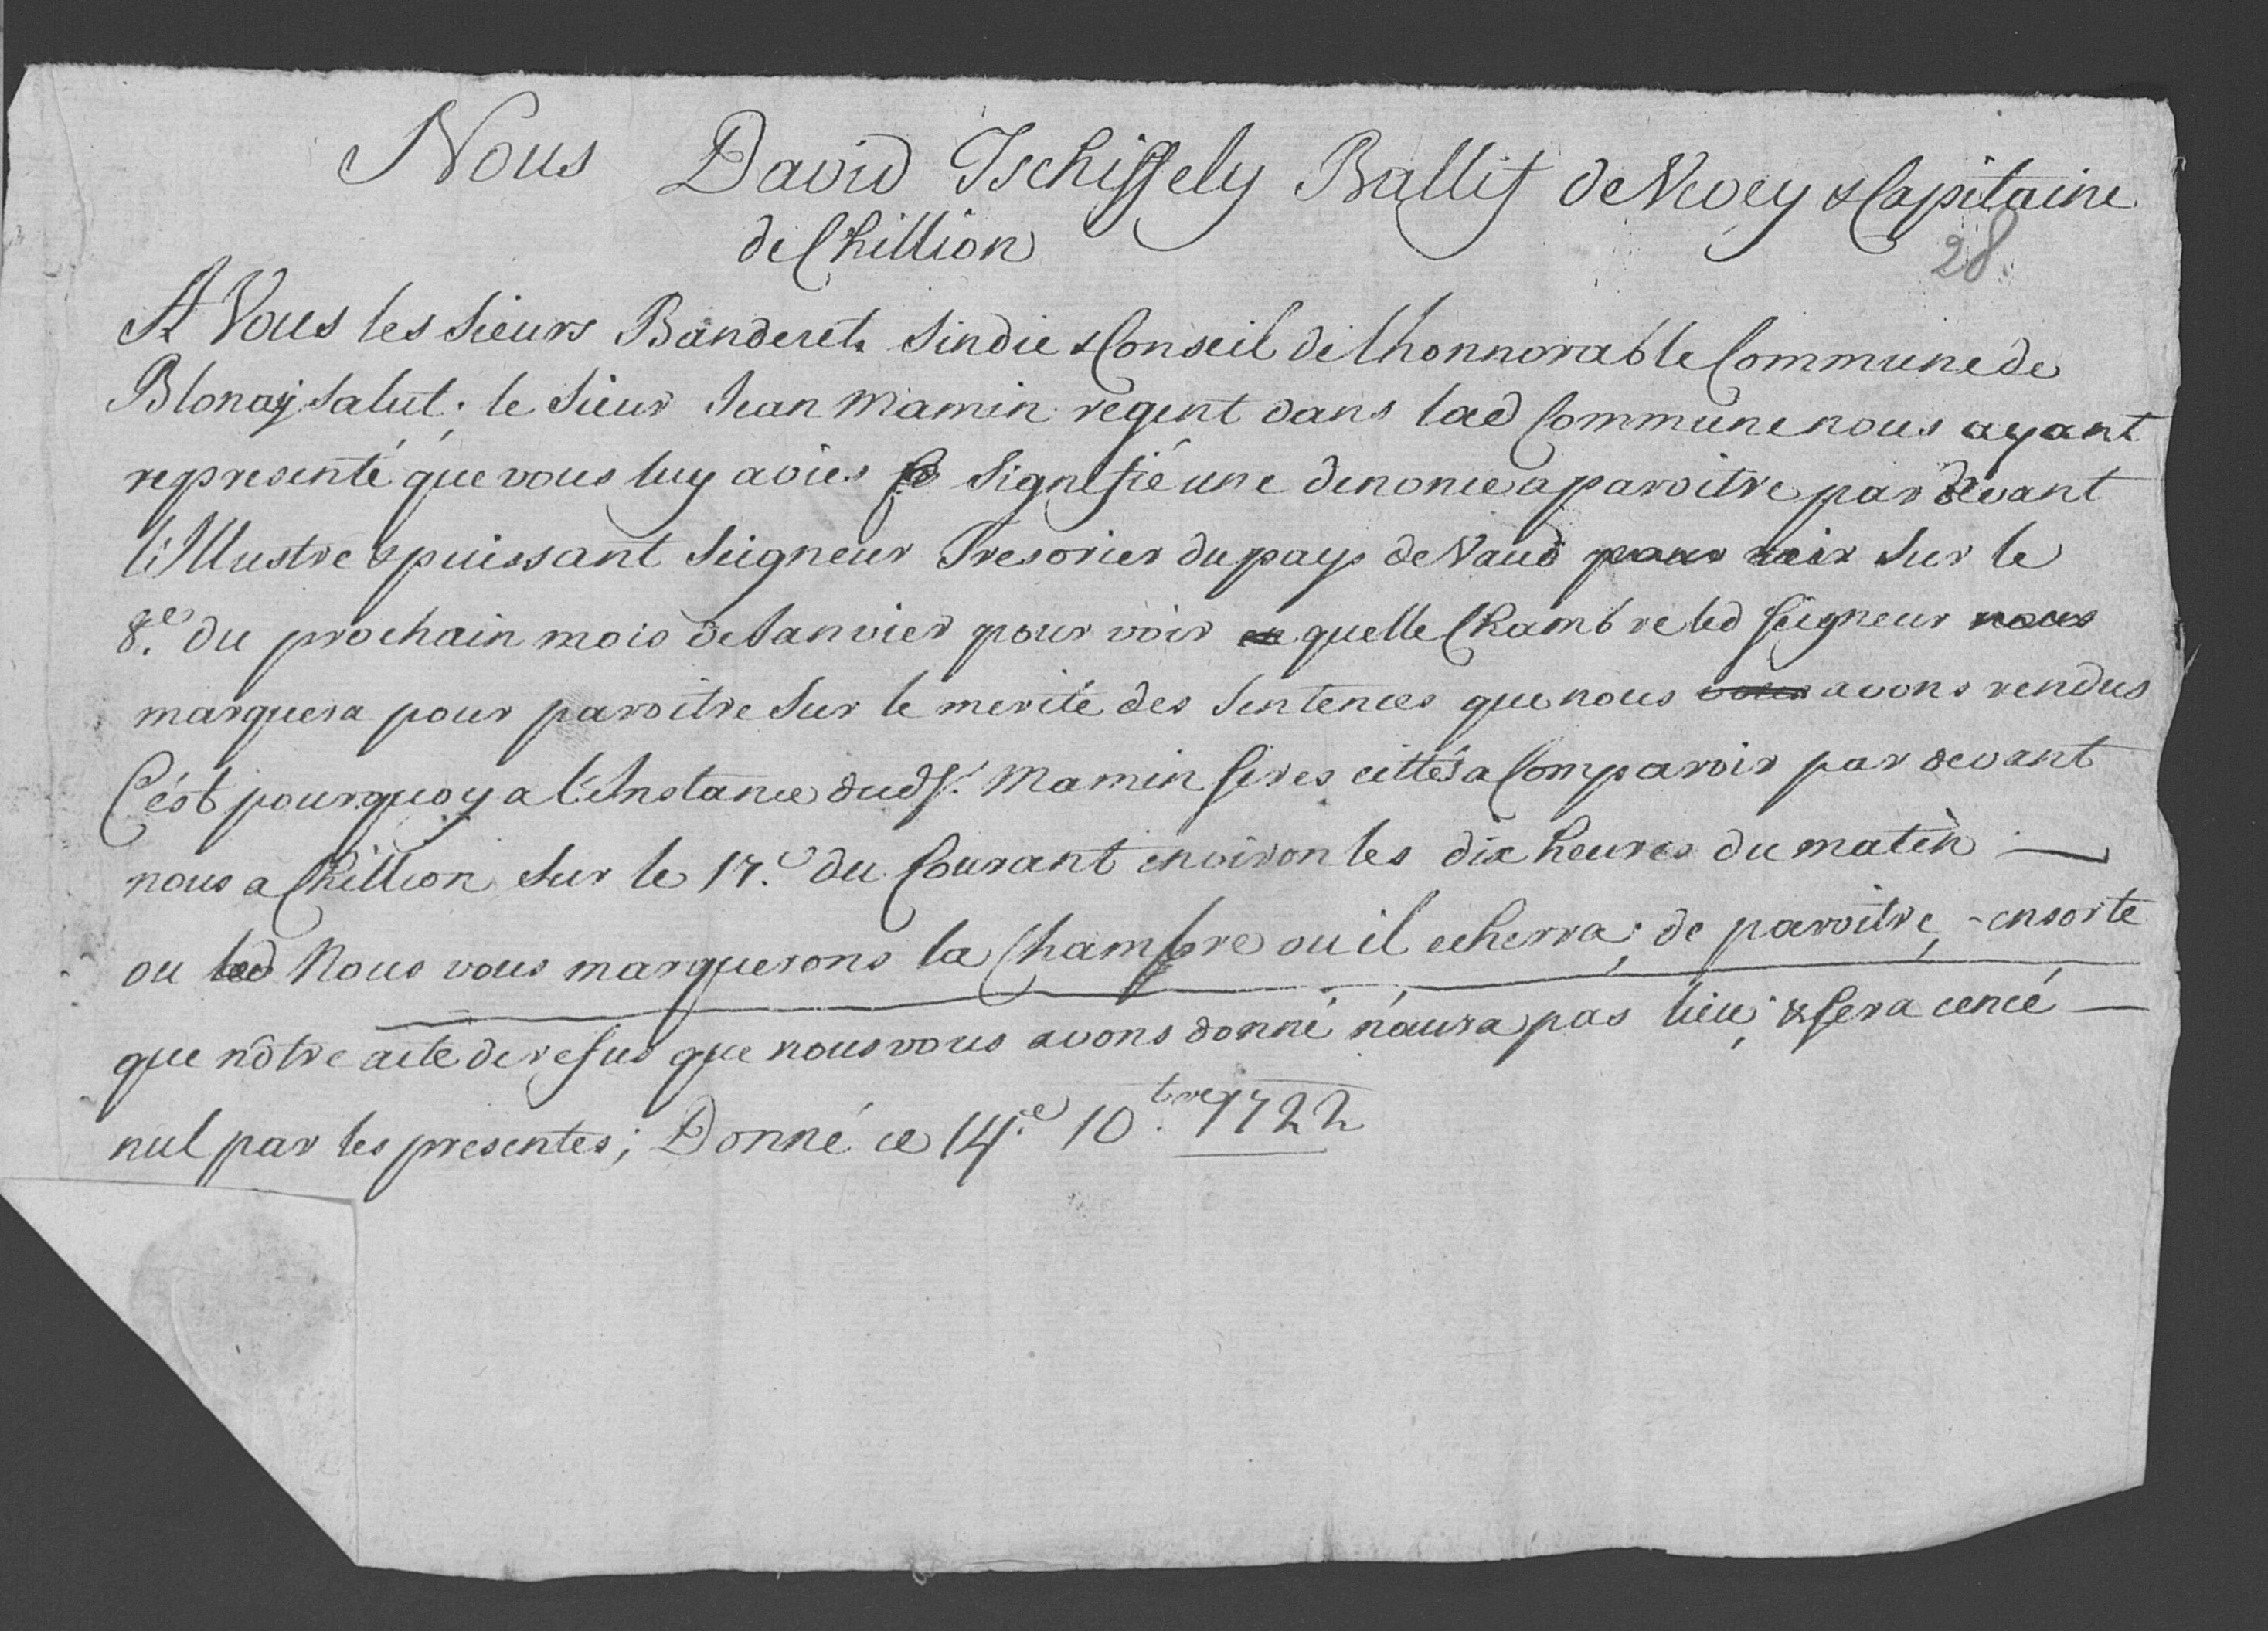 Nous David Tschiffely Ballif de Vevey & Capitaine
de Chillion
28
A Vous les sieurs Banderet, Sindic & Conseil de lhonnorable Commune de
Blonay salut; le sieur Jean Mamin regent dans lad Commune nous ayant
representé que vous luy avies signifié une denonce a paroitre par devant
l'Illustre & puissant Seigneur Tresorier du pays de Vaud pour voir sur le
8.e du prochain mois de Janvier pour voir en quelle Chambre led Seigneur nous
marquera pour paroitre sur le merite des sentences que nous vous avons rendus
C'est pourquoy a l'Instance dud Sr. Mamin seres cittés a Comparoir par devant
nous a Chillion sur le 17.e du Courant environ les dix heures du matin
ou led Nous vous marquerons la Chambre ou il echerra; de paroitre, ensorte
que nôtre acte de refus que nous vous avons donné n'aura pas lieu; & sera censé
nul par les presentes; Donné ce 14.e 10.bre 1722